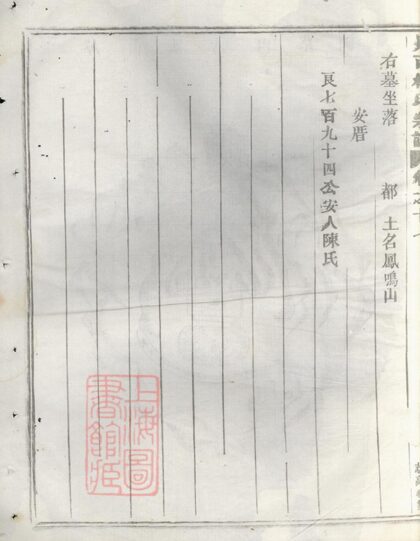 右墓坐落　都　土名鳳鳴山
安厝
良七百九十四公安人陳氏
上海圖
書館藏